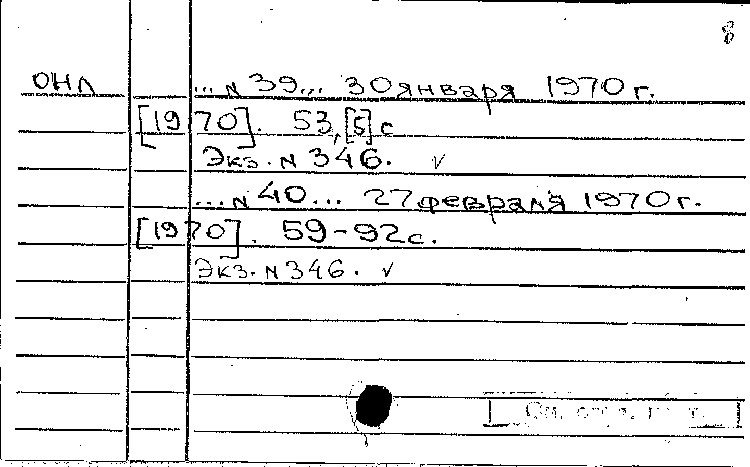 8
ОНЛ ... N 39... 30 января 1970 г.
[1970]. 53,[5] с
Экз. N 346. √
... N 40... 27 февраля 1970 г.
[1970]. 59-92 с.
Экз. N 346. √
См.